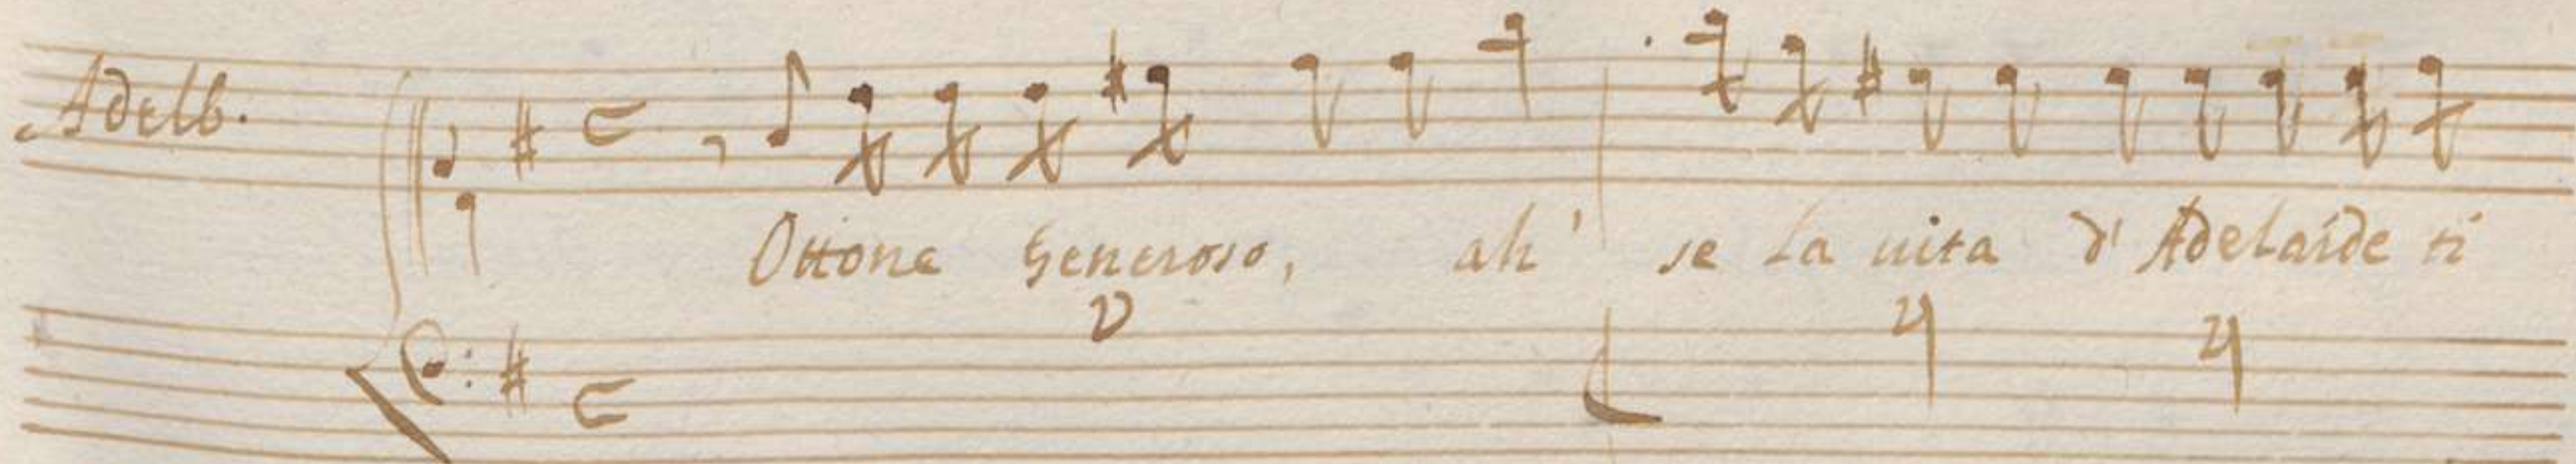 Adelb.
Ottone Generoso, ah' se la uita d' Adelaide ti